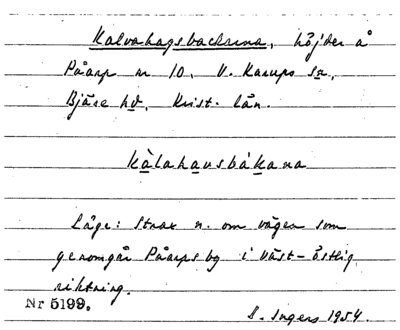 Kalvahagsbackarna, höjder å
Påarp nr 10, V. Karups sn,
Bjäre hd, Krist. län.
kàlahausbákana
Läge: Strax n. om vägen som
genomgår Påarps by i väst-östlig
riktning.
Nr 5199.
S. Ingers 1954.